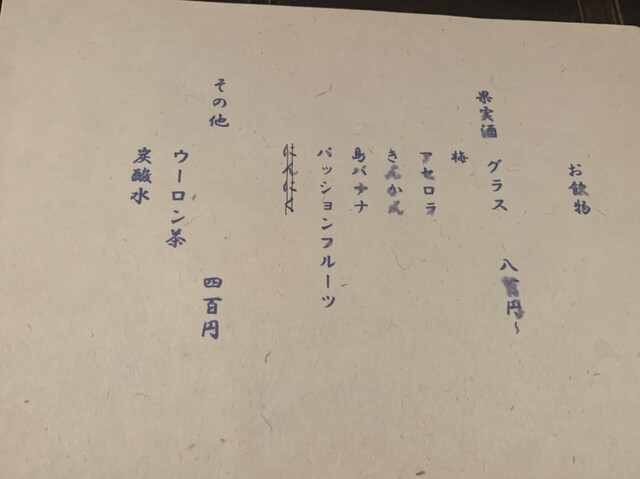 お飲物
果実酒
グラス 八百円~
梅
アセロラ
きんかん
島バナナ
パッションフルーツ
その他
四百円
ウーロン茶
炭酸水